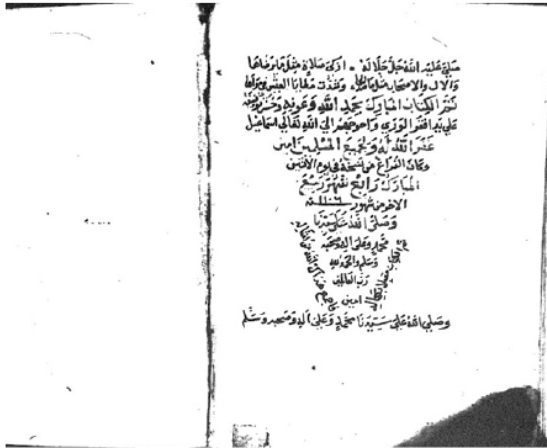 صلى عليه الله جل جلاله ٭ ازكى صلاة مثل ما يرضاها
والآل والاصحاب
تم الكتاب المبارك بحمد الله وعونه وحسن توفيقه
على يد افقر الورى واحوجهم الى الله تعالى اسماعيل
غفر الله له ولجميع المسلمين امين
وكان الفراغ من نسخه في يوم الاثنين
المبارك رابع شهر ربيع
الاخر من شهور
وصلى الله على سيدنا
محمد وعلى اله وصحبه
وسلم والحمد لله
رب العالمين
امين
وصلى الله على سيدنا محمد وعلى اله وصحبه وسلم